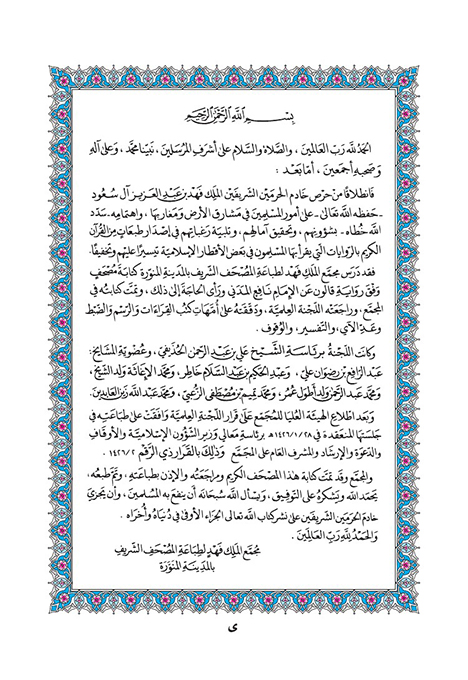 بِسْمِ اللَّهِ الرَّحْمَٰنِ الرَّحِيمِ
الحَمْدُ لِلَّهِ رَبِّ العَالَمِينَ ، وَالصَّلَاةُ وَالسَّلَامُ عَلَى أَشْرَفِ المُرْسَلِينَ ، نَبِيِّنَا مُحَمَّدٍ ، وَعَلَى آلِهِ
وَصَحْبِهِ أَجْمَعِينَ ، أَمَّا بَعْدُ :
فَانْطِلَاقًا مِنْ حِرْصِ خَادِمِ الحَرَمَيْنِ الشَّرِيفَيْنِ المَلِكِ فَهْدِ بْنِ عَبْدِ العَزِيزِ آل سُعُود
- حَفِظَهُ اللَّهُ تَعَالَى - عَلَى أُمُورِ المُسْلِمِينَ فِي مَشَارِقِ الأَرْضِ وَمَغَارِبِهَا ، وَاهْتِمَامِهِ - سَدَّدَ
اللَّهُ خُطَاهُ - بِشُؤُونِهِمْ ، وَتَحْقِيقِ آمَالِهِمْ ، وَتَلْبِيَةِ رَغَبَاتِهِمْ فِي إِصْدَارِ طَبَعَاتٍ مِنَ القُرْآنِ
الكَرِيمِ بِالرِّوَايَاتِ الَّتِي يَقْرَأُ بِهَا المُسْلِمُونَ فِي بَعْضِ الأَقْطَارِ الإِسْلَامِيَّةِ تَيْسِيرًا عَلَيْهِمْ وَتَخْفِيفًا.
فَقَدْ دَرَسَ مُجَمَّعُ المَلِكِ فَهْدٍ لِطِبَاعَةِ المُصْحَفِ الشَّرِيفِ بِالمَدِينَةِ المُنَوَّرَةِ كِتَابَةَ مُصْحَفٍ
وَفْقَ رِوَايَةِ قَالُونَ عَنِ الإِمَامِ نَافِعٍ المَدَنِيِّ وَرَأَى الحَاجَةَ إِلَى ذَلِكَ ، وَتَمَّتْ كِتَابَتُهُ فِي
المُجَمَّعِ ، وَرَاجَعَتْهُ اللَّجْنَةُ العِلْمِيَّةُ، وَدَقَّقَتْهُ عَلَى أُمَّهَاتِ كُتُبِ القِرَاءَاتِ وَالرَّسْمِ وَالضَّبْطِ
وَعَدِّ الآيِ، وَالتَّفْسِيرِ، وَالوُقُوفِ .
وَكَانَتِ اللَّجْنَةُ بِرِئَاسَةِ الشَّيْخِ عَلِيِّ بْنِ عَبْدِ الرَّحْمَنِ الحُذَيْفِيِّ ، وَعُضْوِيَّةِ المَشَايِخِ:
عَبْدِ الرَّافِعِ بْنِ رِضْوَانَ عَلِي ، وَعَبْدِ الحَكِيمِ بْنِ عَبْدِ السَّلَامِ خَاطِر ، وَمُحَمَّد الإِغَاثَة وَلَد الشَّيْخ ،
وَمُحَمَّد عَبْدِ الرَّحْمَنِ وَلَد أَطْوَل عُمُر ، وَمُحَمَّد تَمِيم بْنِ مُصْطَفَى الزُّعْبِي ، وَمُحَمَّد عَبْدِ اللَّهِ زَيْنِ العَابِدِينَ.
وَبَعْدَ اطِّلَاعِ الهَيْئَةِ العُلْيَا لِلْمُجَمَّعِ عَلَى قَرَارِ اللَّجْنَةِ العِلْمِيَّةِ وَافَقَتْ عَلَى طِبَاعَتِهِ فِي
جَلْسَتِهَا المُنْعَقِدَةِ فِي ١٤٢٦/١/٢٨هـ بِرِئَاسَةِ مَعَالِي وَزِيرِ الشُّؤُونِ الإِسْلَامِيَّةِ وَالأَوْقَافِ
وَالدَّعْوَةِ وَالإِرْشَادِ وَالمُشْرِفِ العَامِّ عَلَى المُجَمَّعِ وَذَلِكَ بِالقَرَارِ ذِي الرَّقْمِ ١٤٢٦/٢ .
وَالمُجَمَّعُ وَقَدْ تَمَّتْ كِتَابَةُ هَذَا المُصْحَفِ الكَرِيمِ وَمُرَاجَعَتُهُ وَالإِذْنُ بِطِبَاعَتِهِ ، وَتَمَّ طَبْعُهُ،
يَحْمَدُ اللَّهَ وَيَشْكُرُهُ عَلَى التَّوْفِيقِ ، وَيَسْأَلُ اللَّهَ سُبْحَانَهُ أَنْ يَنْفَعَ بِهِ المُسْلِمِينَ ، وَأَنْ يَجْزِيَ
خَادِمَ الحَرَمَيْنِ الشَّرِيفَيْنِ عَلَى نَشْرِ كِتَابِ اللَّهِ تَعَالَى الجَزَاءَ الأَوْفَى فِي دُنْيَاهُ وَأُخْرَاهُ .
وَالحَمْدُ لِلَّهِ رَبِّ العَالَمِينَ .
مُجَمَّعُ المَلِكِ فَهْدٍ لِطِبَاعَةِ المُصْحَفِ الشَّرِيفِ
بِالمَدِينَةِ المُنَوَّرَةِ
ى